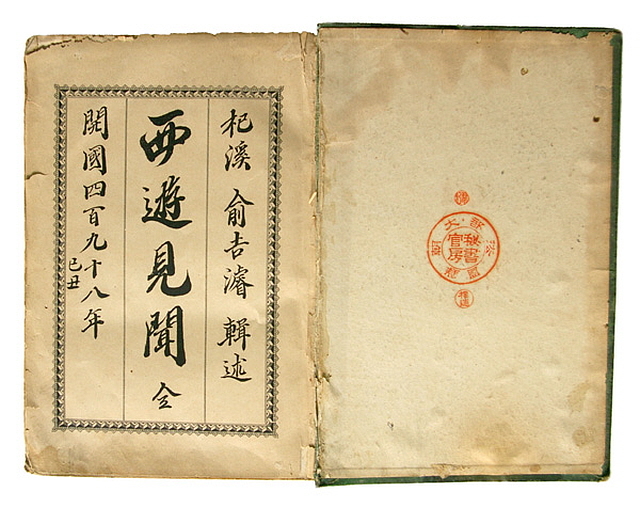 杞溪 兪吉濬 輯述
西遊見聞 全
開國四百九十八年 己丑
秘書
官房